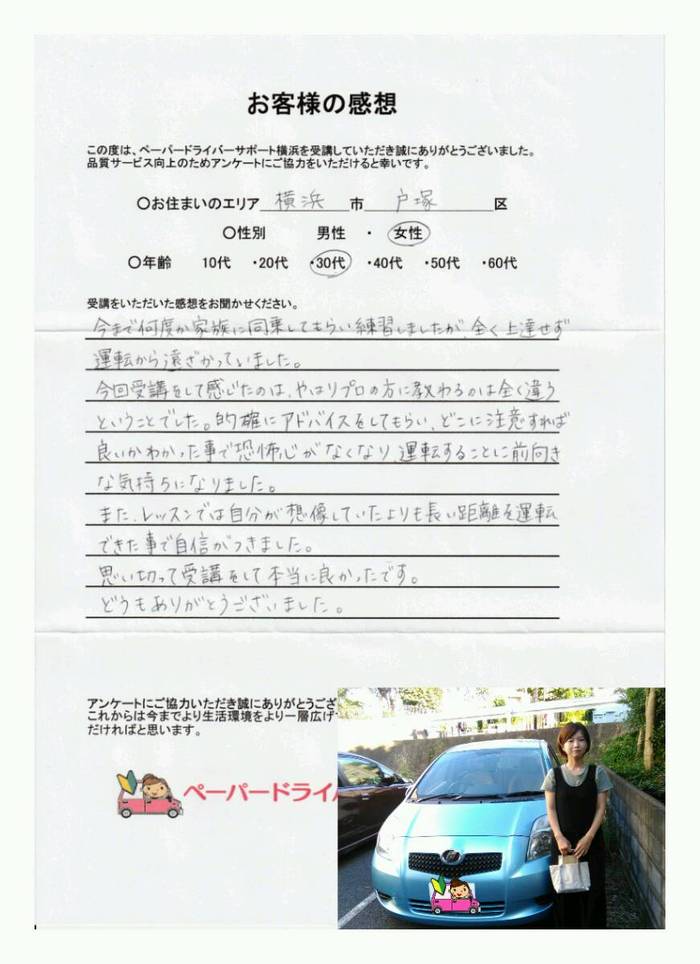 お客様の感想
この度は、ペーパードライバーサポート横浜を受講していただき誠にありがとうございました。
品質サービス向上のためアンケートにご協力をいただけると幸いです。
○お住まいのエリア 横浜 市 戸塚 区
○性別 男性 ・ 女性
○年齢 10代 ・20代 ・30代 ・40代 ・50代 ・60代
受講をいただいた感想をお聞かせください。
今まで何度か家族に同乗してもらい練習しましたが、全く上達せず
運転から遠ざかっていました。
今回受講をして感じたのは、やはりプロの方に教わるのは全く違う
ということでした。的確にアドバイスをしてもらい、どこに注意すれば
良いかわかった事で恐怖心がなくなり、運転することに前向き
な気持ちになりました。
また、レッスンでは自分が想像していたよりも長い距離を運転
できた事で自信がつきました。
思い切って受講をして本当に良かったです。
どうもありがとうございました。
アンケートにご協力いただき誠にありがとうござ
これからは今までより生活環境をより一層広げ
だければと思います。
ペーパードライバ